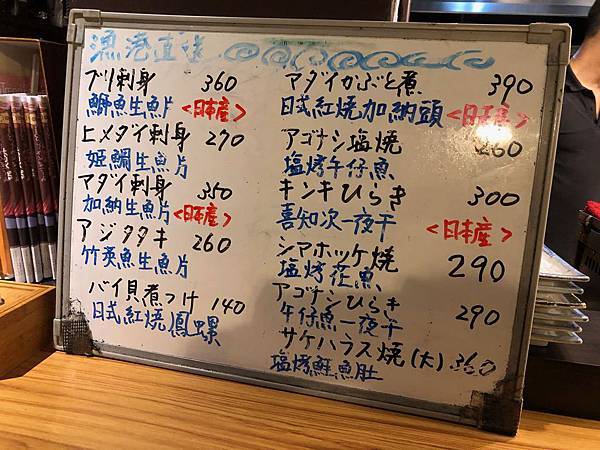 漁港直送
ブリ刺身 360
鰤魚生魚片 <日本産>
ヒメダイ刺身 270
姫鯛生魚片
マダイ刺身 350
加納生魚片 <日本産>
アジタタキ 260
竹筴魚生魚片
バイ貝煮つけ 140
日式紅焼鳳螺
マダイかぶと煮 390
日式紅焼加納頭 <日本産>
アゴナシ塩焼 260
塩烤午仔魚
キンキひらき 300
喜知次一夜干 <日本産>
シマホッケ焼 290
塩烤花魚
アゴナシひらき 290
午仔魚一夜干
サケハラス焼(大) 360
塩烤鮭魚肚